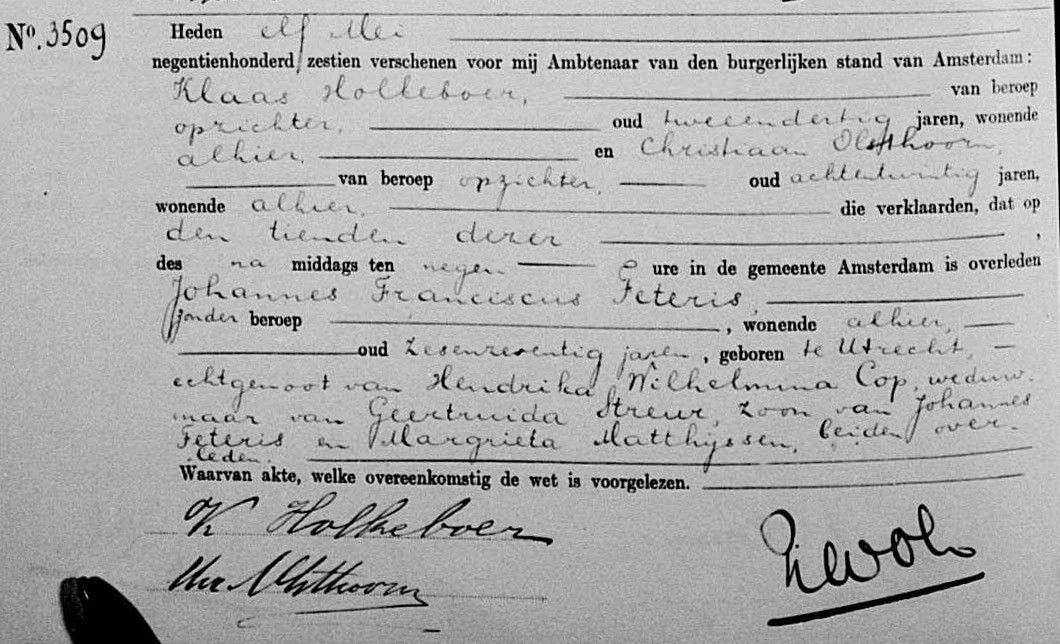 No. 3509 Heden elf Mei
negentienhonderd zestien verschenen voor mij Ambtenaar van den burgerlijken stand van Amsterdam:
Klaas Holkeboer, van beroep
opzichter, oud tweeendertig jaren, wonende
alhier, en Christiaan Olsthoorn,
van beroep opzichter, oud achtentwintig jaren,
wonende alhier, die verklaarden, dat op
den tienden dezer ,
des na middags ten negen ure in de gemeente Amsterdam is overleden
Johannes Franciscus Feteris,
zonder beroep , wonende alhier,
oud zesenzeventig jaren, geboren te Utrecht,
echtgenoot van Hendrika Wilhelmina Cop, weduw-
naar van Geertruida Streur, zoon van Johannes
Feteris en Margrieta Matthijssen, beiden over-
leden.
Waarvan akte, welke overeenkomstig de wet is voorgelezen.
K Holkeboer
Chr Olsthoorn